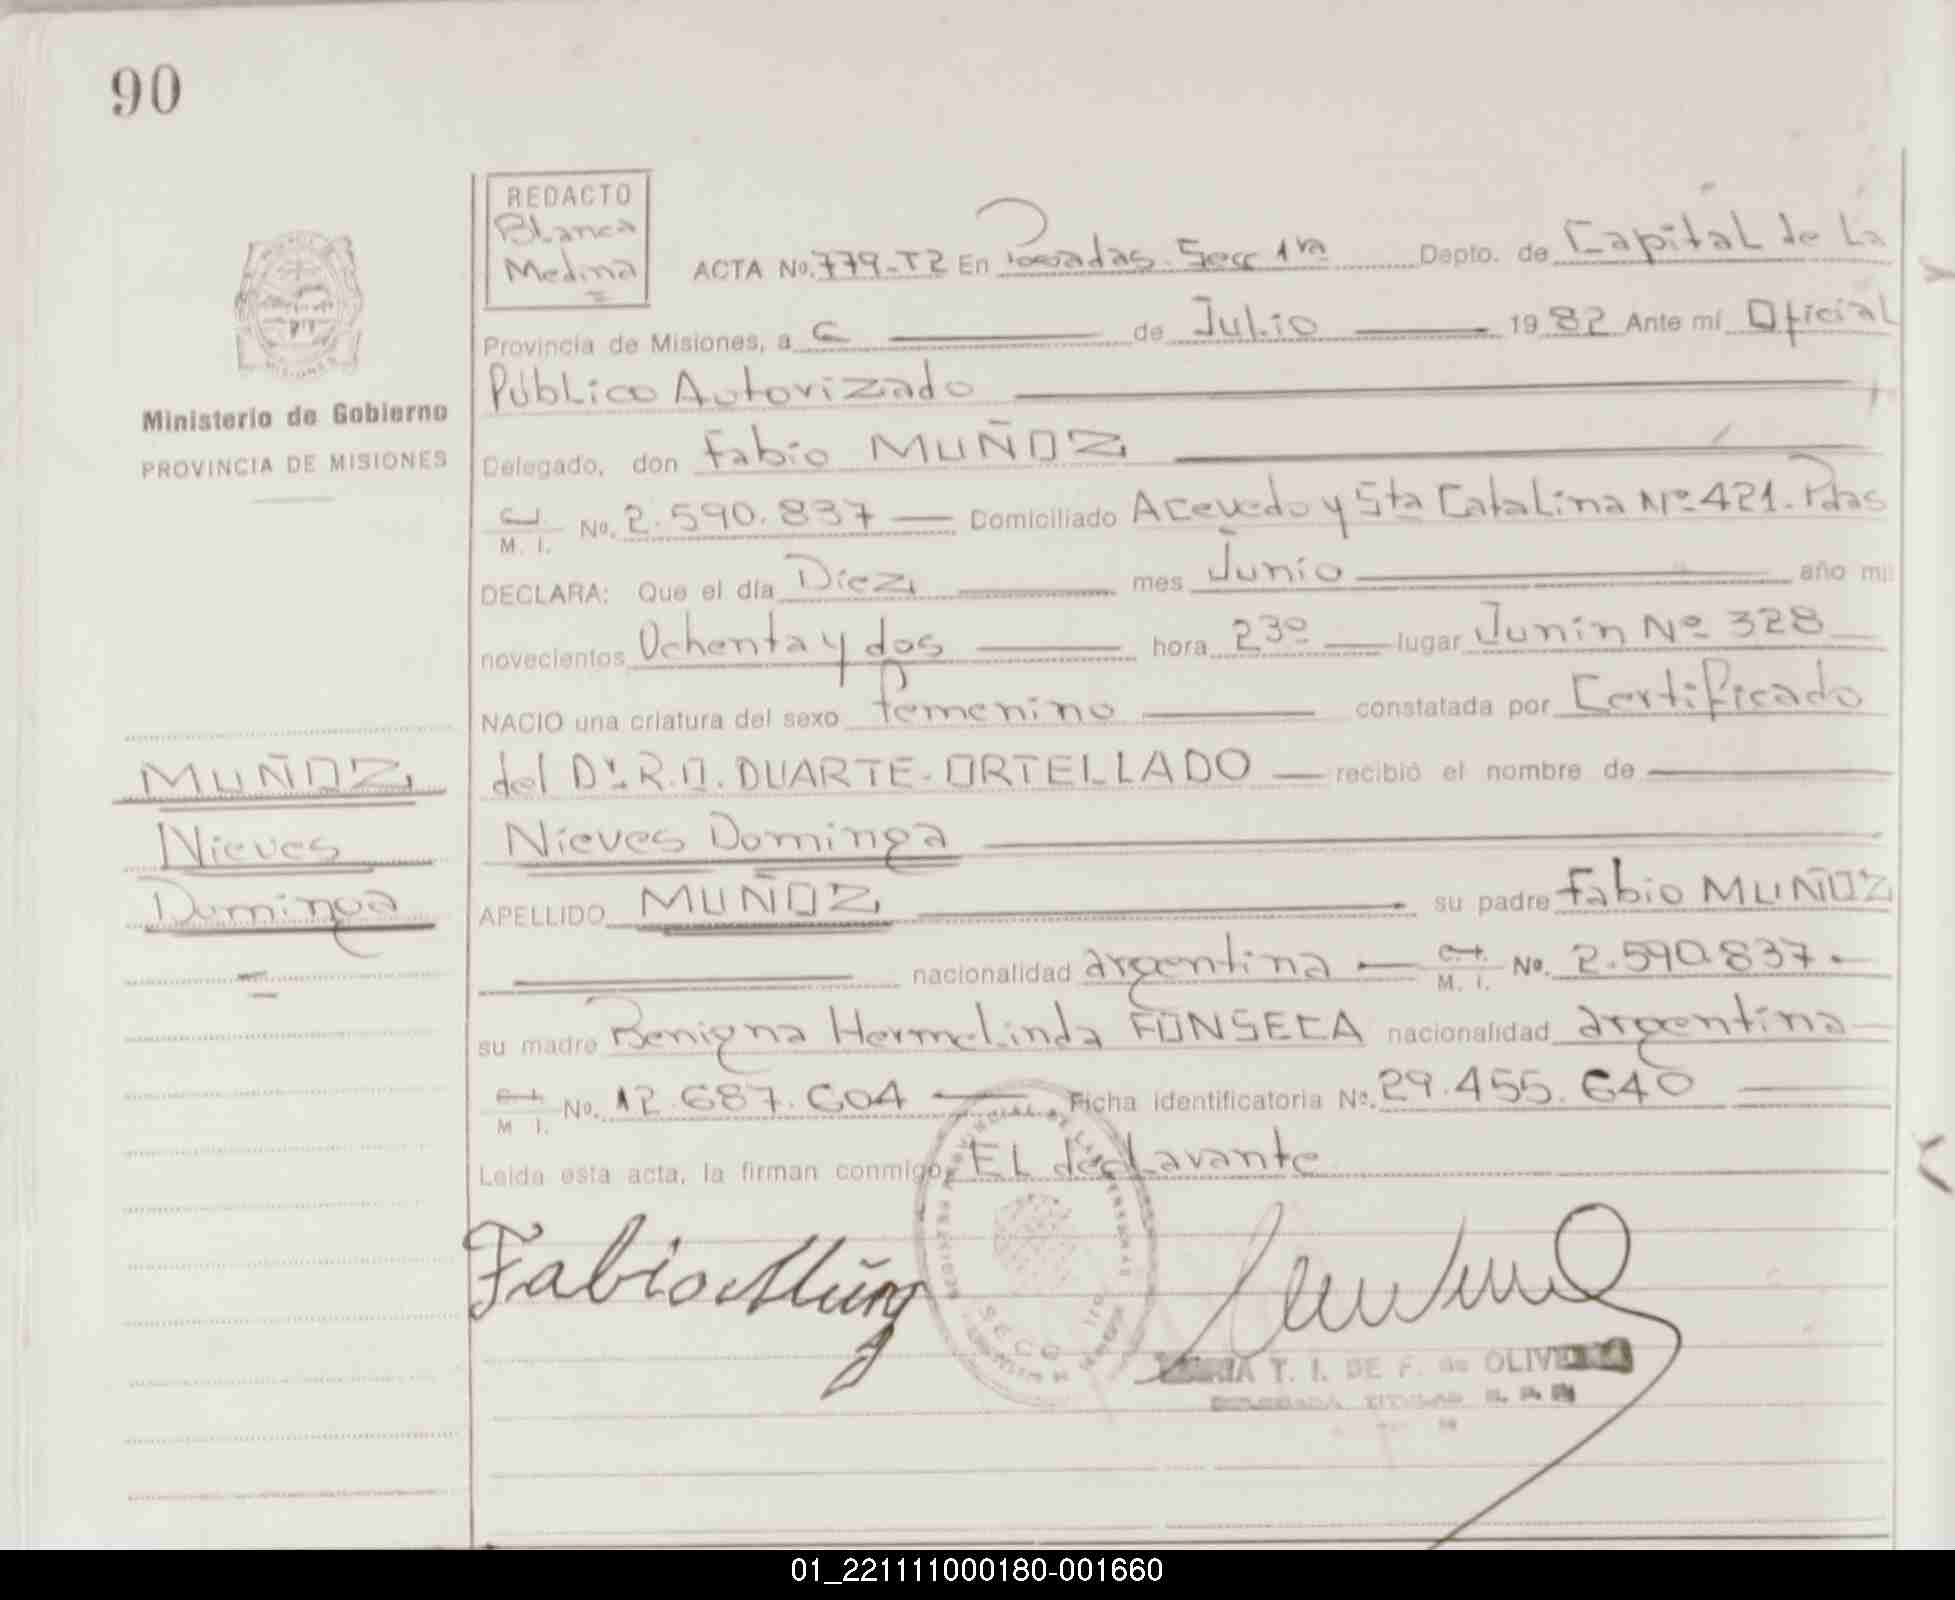 90
REDACTO
Blanca
Medina
ACTA No. 779-T2 En Posadas. Secc 1ra Depto. de Capital de La
Provincia de Misiones, a 6 de Julio 1982 Ante mí Oficial
Público Autorizado
Ministerio de Gobierno
PROVINCIA DE MISIONES
Delegado, don Fabio MUÑOZ
C.I.
M. I. No. 2.590.837 Domiciliado Acevedo y Sta Catalina Nº 421. Pdas
DECLARA: Que el día Diez mes Junio año mil
novecientos Ochenta y dos hora 23º lugar Junín Nº 328
NACIO una criatura del sexo femenino constatada por Certificado
del Dr. R.O. DUARTE-ORTELLADO recibió el nombre de
Nieves Dominga
APELLIDO MUÑOZ su padre Fabio MUÑOZ
nacionalidad argentina C.I.
M. I. No. 2.590.837.
su madre Benigna Hermelinda FONSECA nacionalidad argentina
C.I.
M I. No. 12.687.604 Ficha identificatoria Nº. 29.455.640
Leida esta acta, la firman conmigo, El declarante
MUÑOZ
Nieves
Dominga
Fabio Muñoz
T. I. DE F. de
01_221111000180-001660